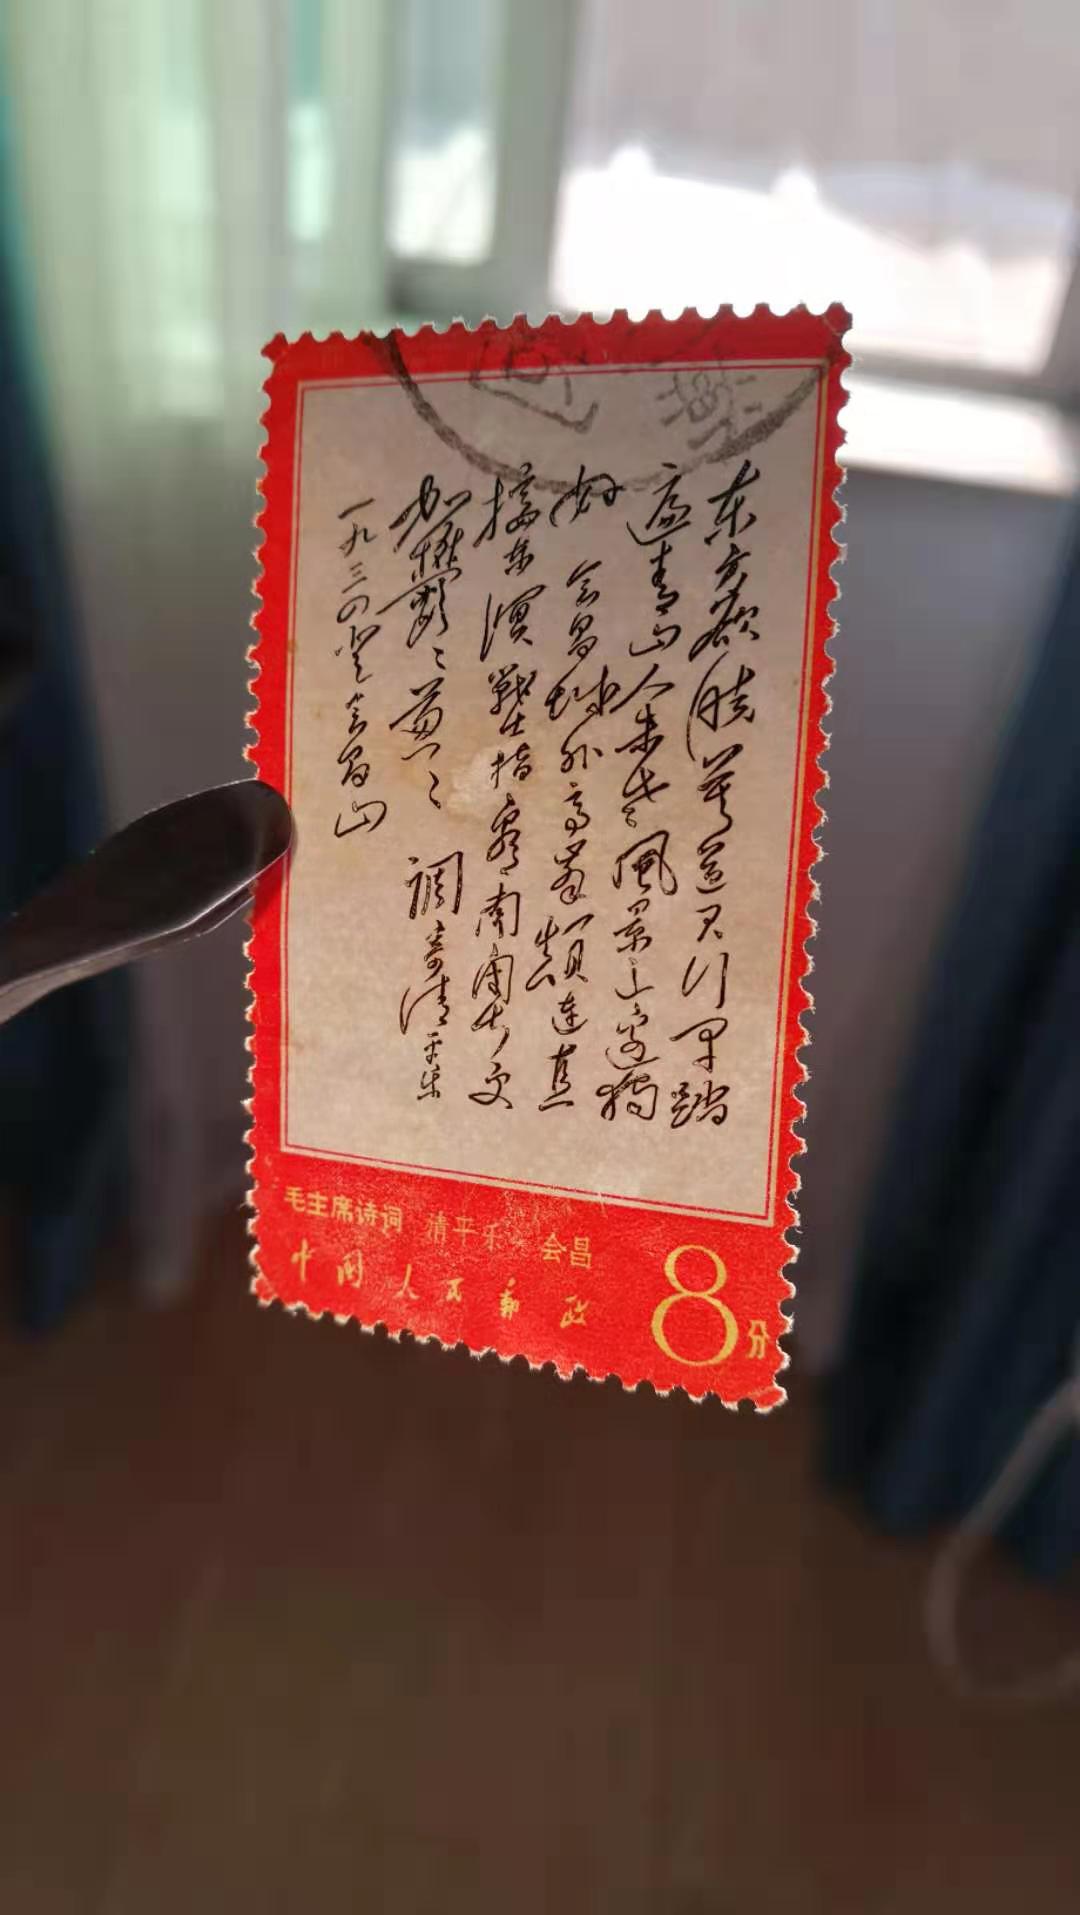 东方欲晓莫道君行早踏
遍青山人未老風景这边独
好 会昌城外高峯颠連直
接东溟戰士指看南粤更
加鬱〻葱〻 调寄清平乐
一九三四登会昌山
毛主席诗词 清平乐 会昌
中国人民邮政
8分